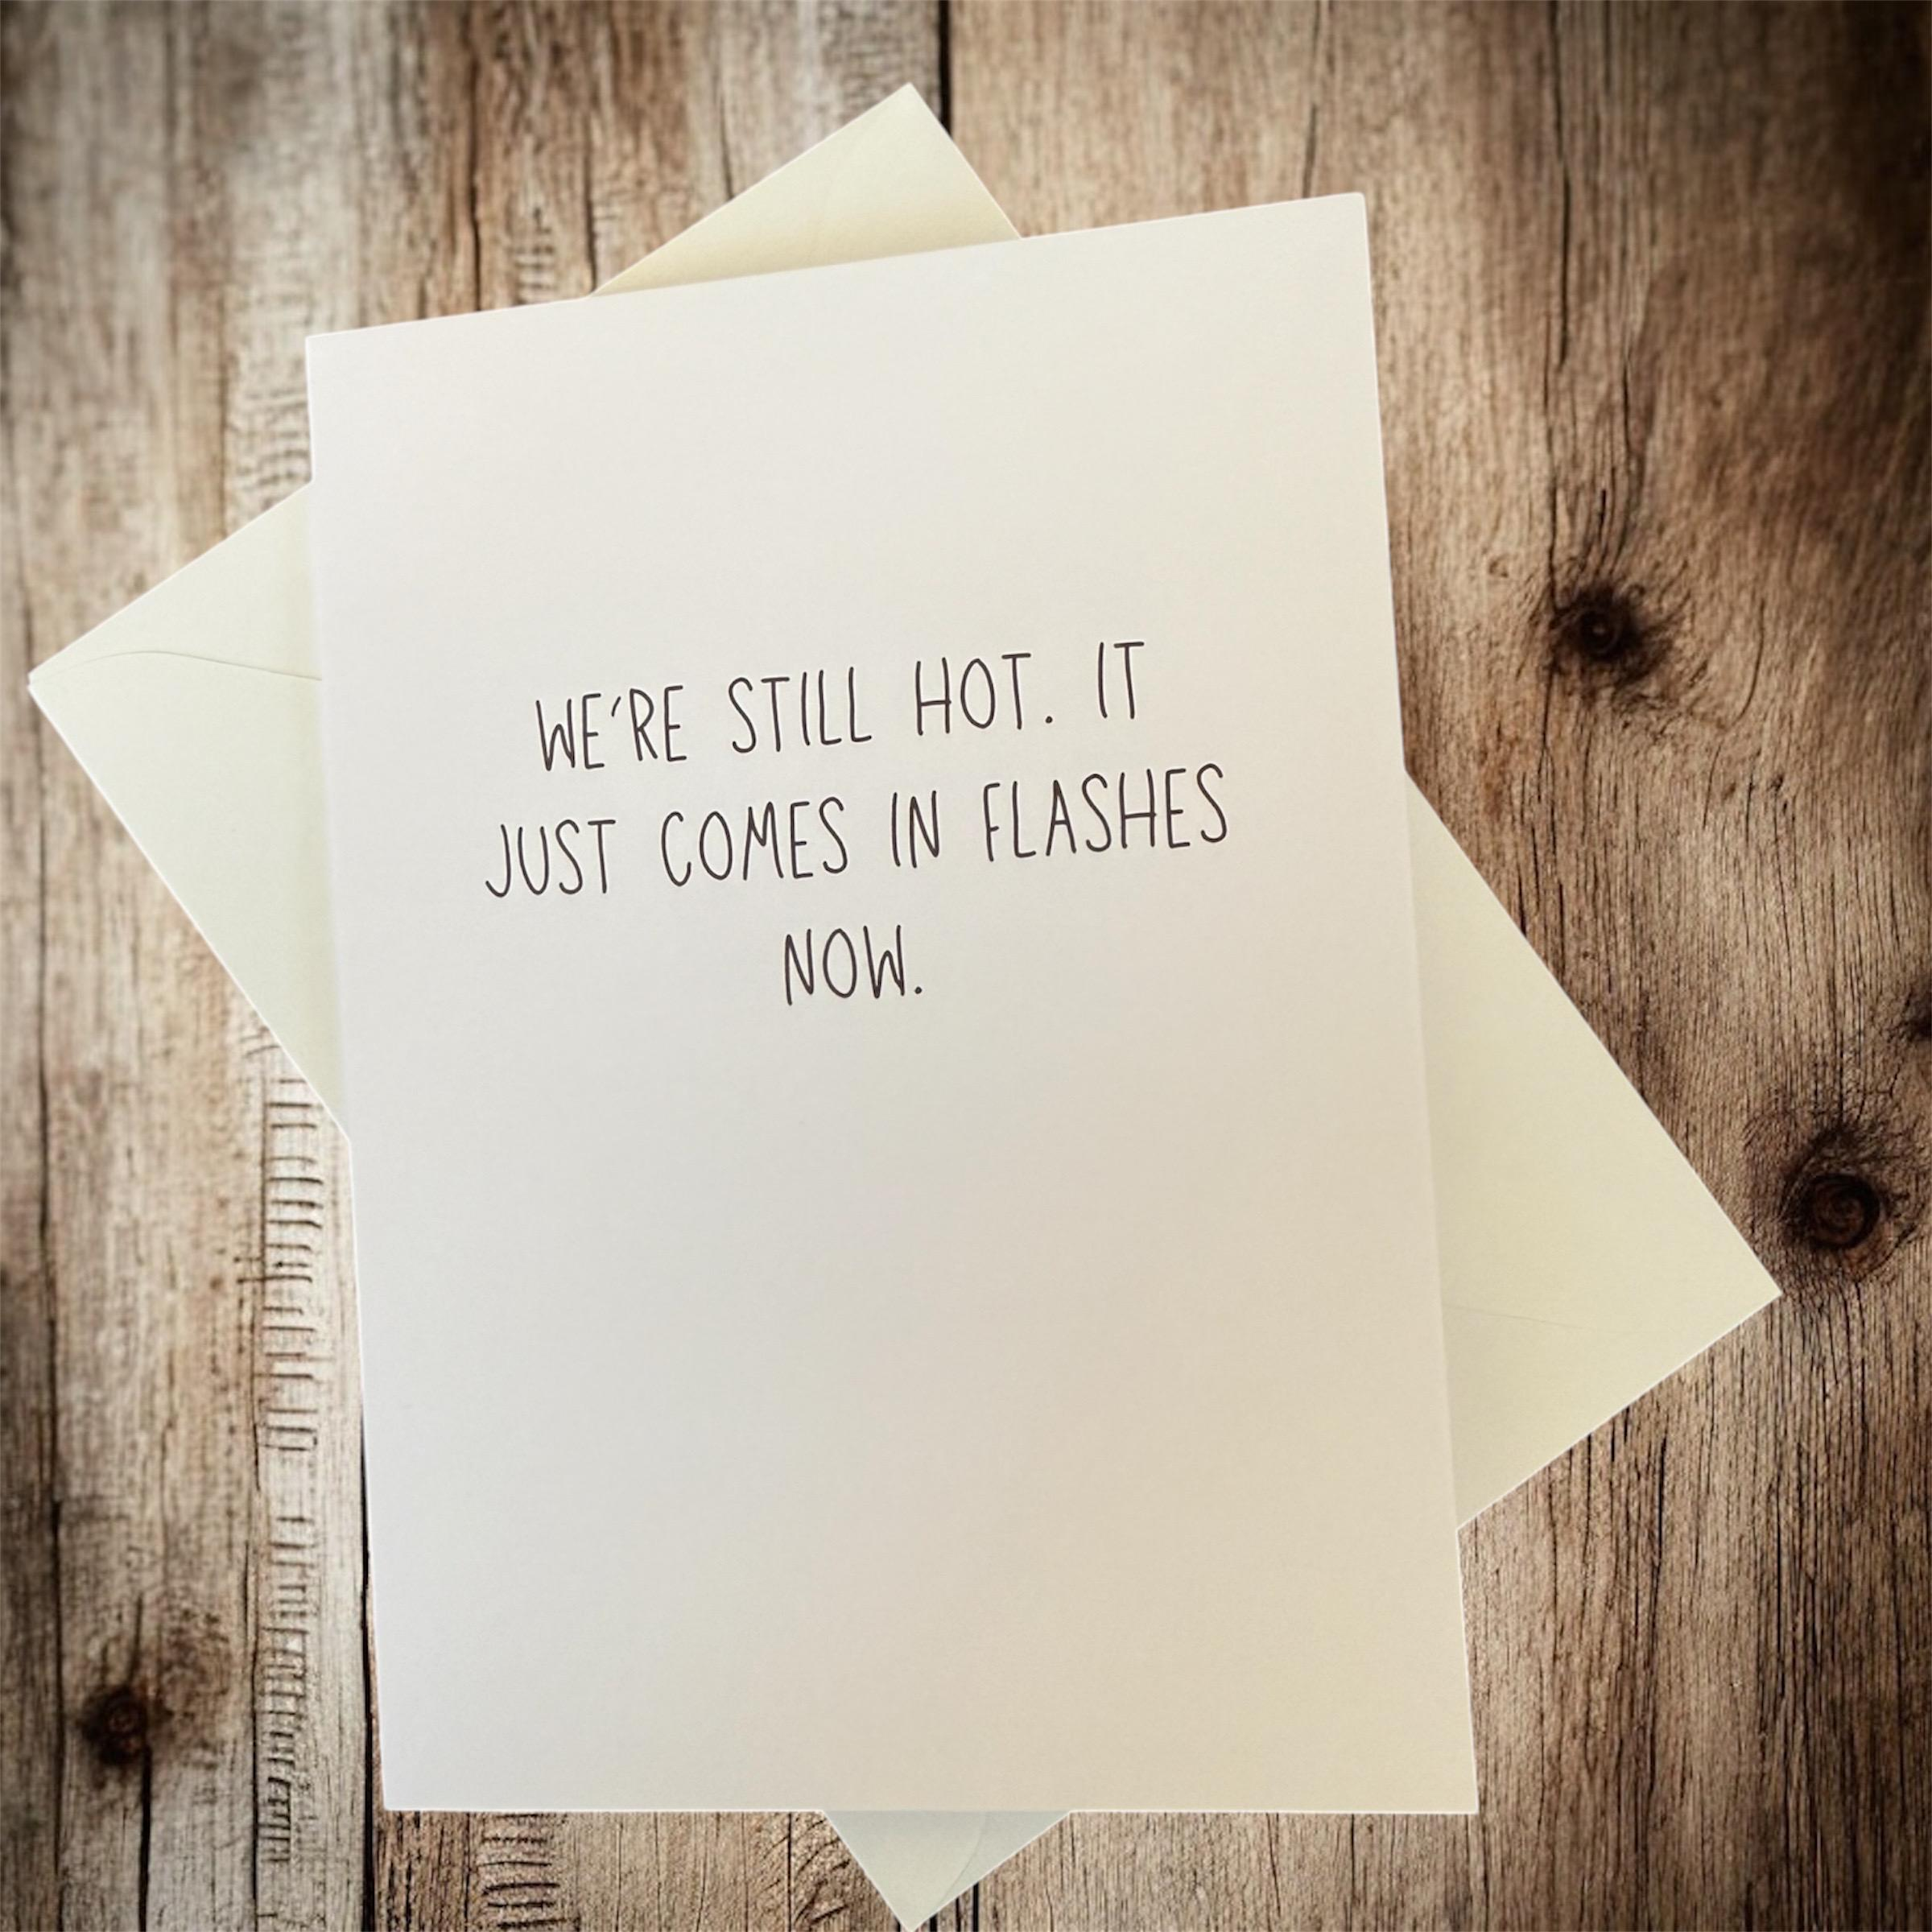 WE'RE STILL HOT. IT
JUST COMES IN FLASHES
NOW.